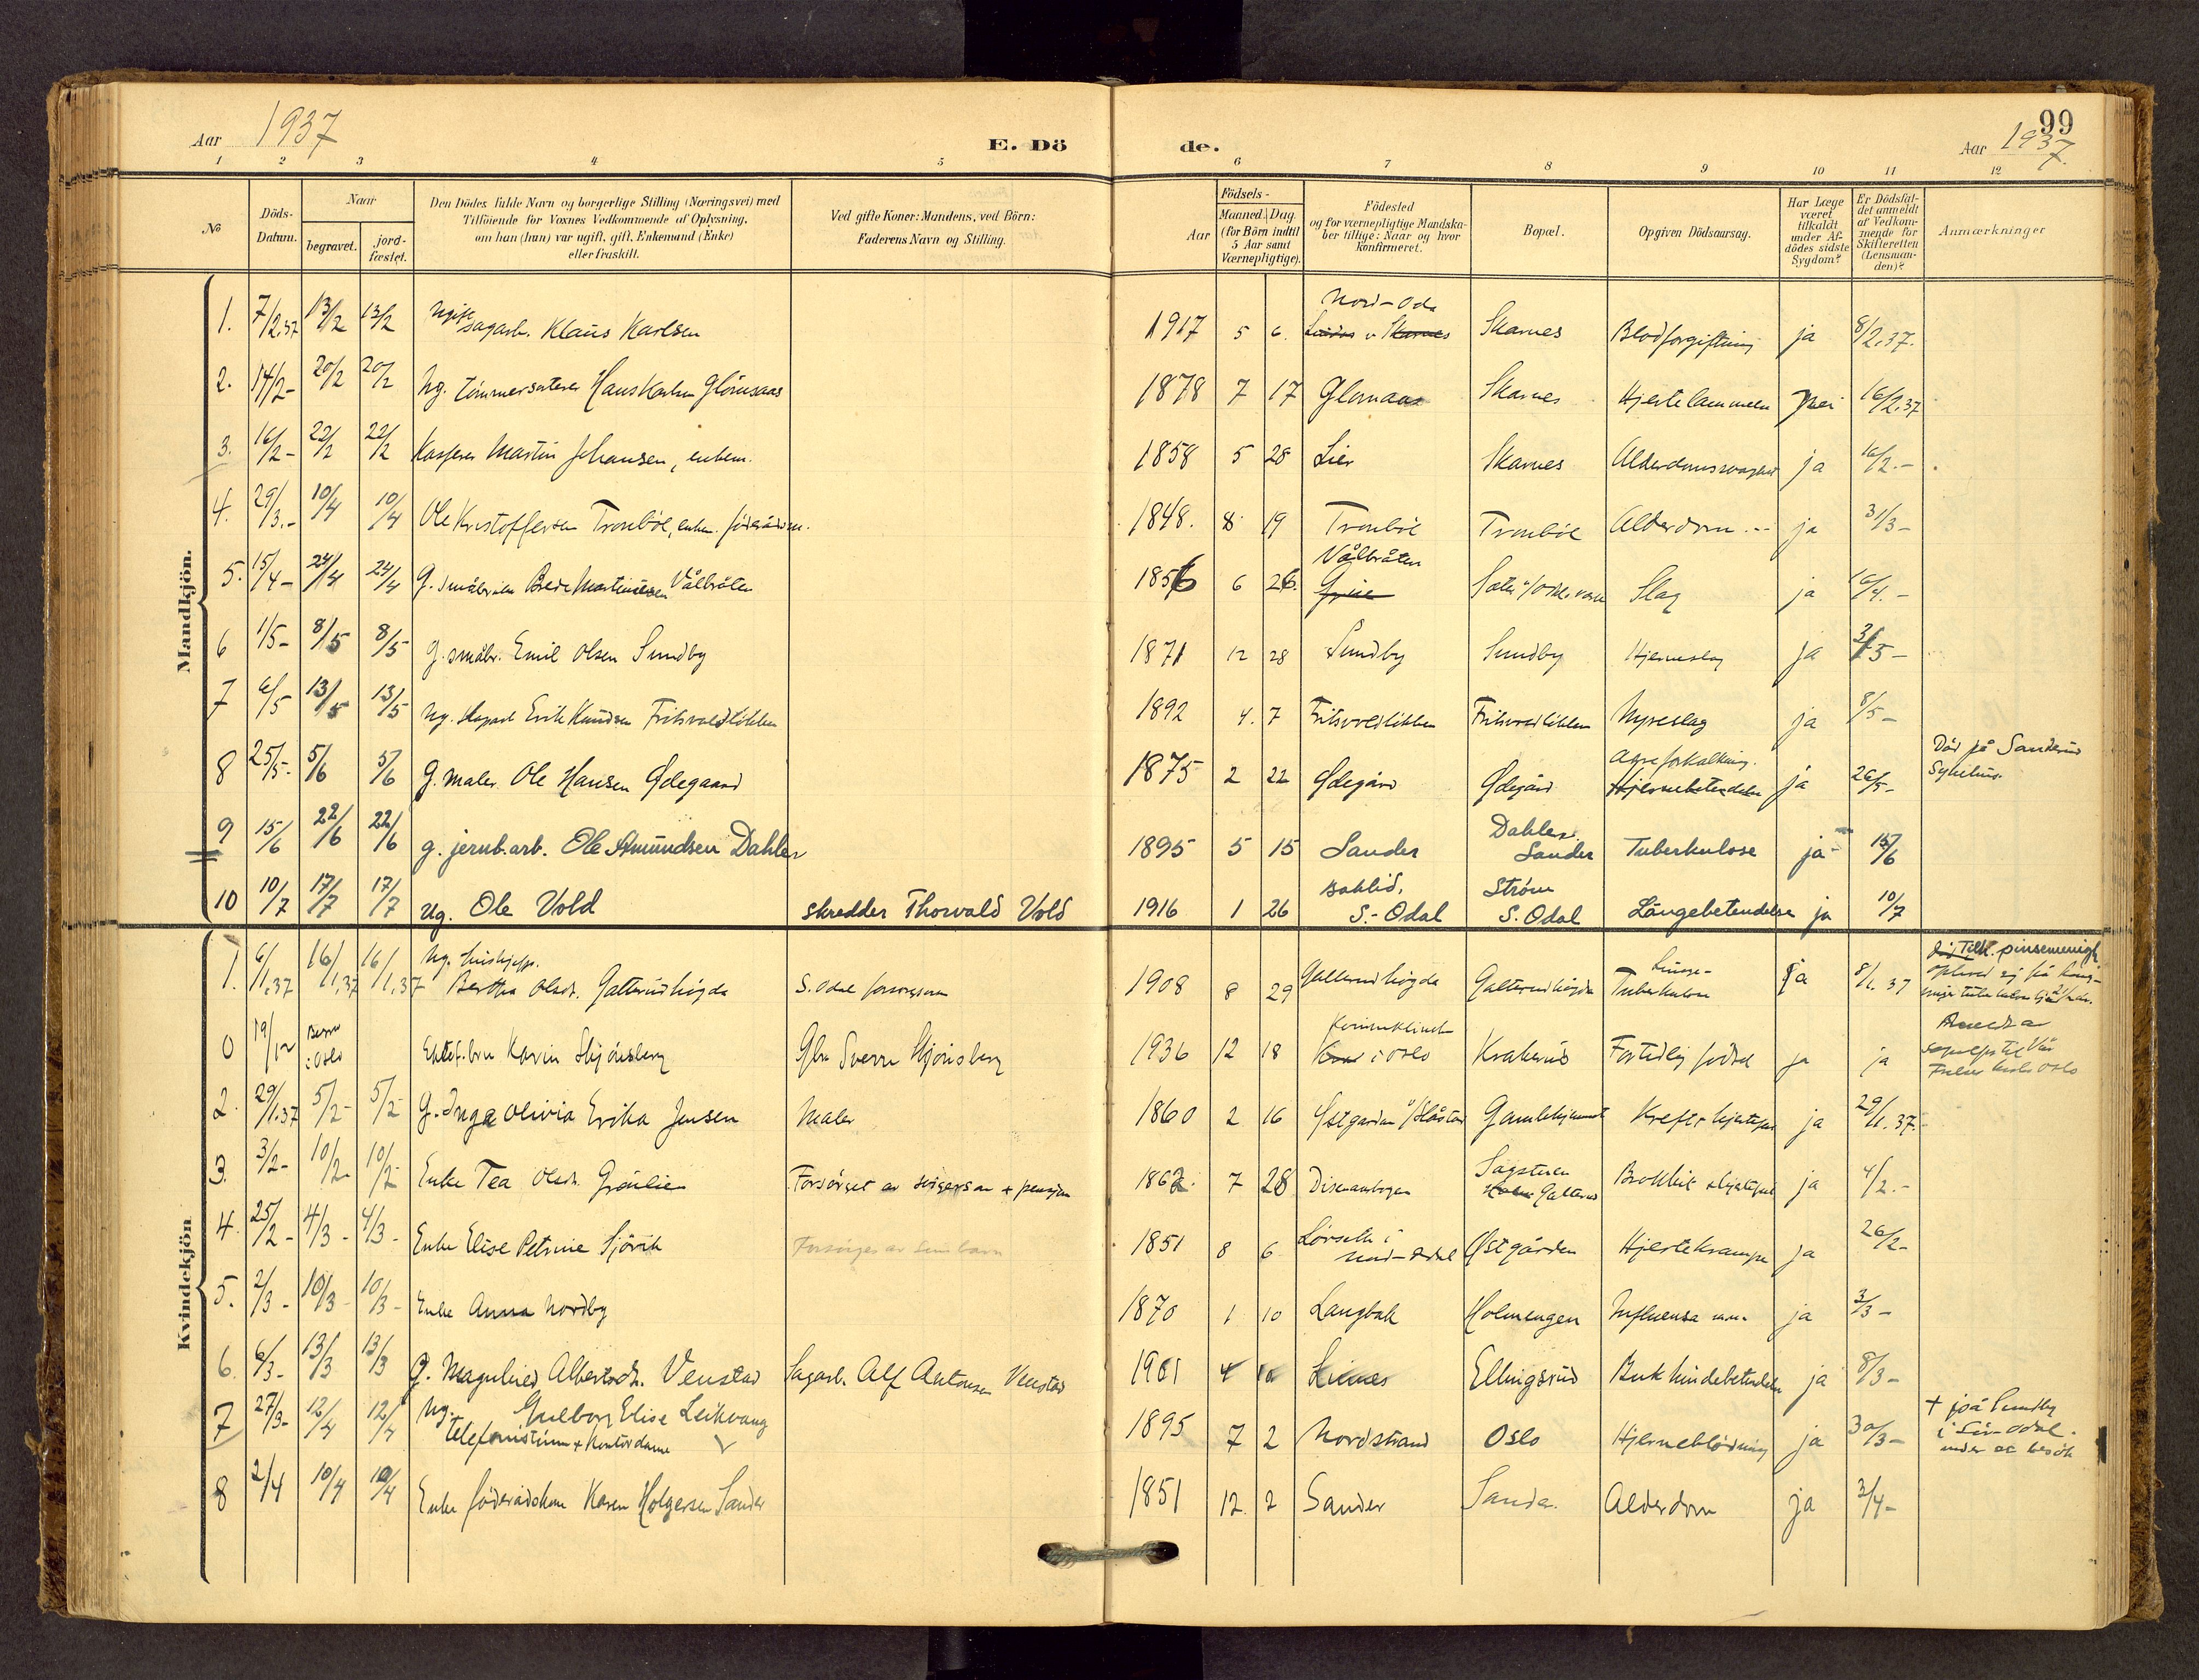 Aar 1937
E. Dö
de.
99
Aar 1937.
1 2 3 4 5 6 7 8 9 10 11 12
№
Döds-
Datum.
Naar
begravet.
jord-
fæstet.
Den Dödes fulde Navn og borgerlige Stilling (Næringsvei) med
Tilföiende for Voxnes Vedkommende af Oplysning,
om han (hun) var ugift, gift, Enkemand (Enke)
eller fraskilt.
Ved gifte Koner: Mandens, ved Börn:
Faderens Navn og Stilling.
Födsels-
Aar
Maaned. Dag.
(for Börn indtil
5 Aar samt
Værnepligtige).
Födested
og for værnepligtige Mandska-
ber tillige: Naar og hvor
konfirmeret.
Bopæl.
Opgiven Dödsaarsag.
Har Læge
været
tilkaldt
under Af-
dödes sidste
Sygdom?
Er Dödsfal-
det anmeldt
af Vedkom-
mende for
Skifteretten
(Lensman-
den)?
Anmærkninger
Mandkjön.
1. 7/2.37 13/2 13/2 Ugift sagarb. Klaus Karlsen 1917 5 6. Nord-Oda Skarnes Skarnes Blodforgiftning ja 8/2.37.
2. 14/2- 20/2 20/2 Ug. tömmersorterer Hans Karlsen Glomsaas 1878 7 17 Glomaas Skarnes Hjertelammelse nei 16/2.37
3. 16/2- 22/2 22/2 Kasserer Martin Johansen, enkem. 1858 5 28 Lier Skarnes Alderdomssvaghet ja 16/2.-
4. 29/3.- 10/4 10/4 Ole Kristoffersen Tronböl, enkem. föderådsm. 1848. 8 19 Tronböl Tronböl Alderdom ja 31/3-
5. 15/4- 24/4 24/4 G. småbruker Brede Martinsen Vålbråten 1856 6 26. Vålbråten Slag ja 16/4.-
6 1/5- 8/5 8/5 g. småbr. Emil Olsen Sundby 1871 12 28 Sundby Sundby Hjerneslag ja 3/5-
7 6/5 13/5 13/5 Ug. Erik Knudsen Fritsvoldlökken 1892 4. 7 Fritsvoldlökken Fritsvoldlökken Nyreslag ja 8/5-
8 25/5- 5/6 5/6 G. maler Ole Hansen Ødegaard 1875 2 22 Ødegård Ødegård Åreforkalkning. Hjernebetendelse ja 26/5- Död på Sanderud
Sykehus.
9 15/6 22/6 22/6 g. jernb.arb. Ole Amundsen Dahlen 1895 5 15 Sander Dahlen Sander Tuberkulose ja 15/6
10 10/7 17/7 17/7 Ug. Ole Vold skredder Thorvald Vold 1916 1 26 Baklid, S.-Odal Ström S. Odal Lungebetendelse ja 10/7
Kvindekjön
1. 6/1.37 16/1.37 16/1.37 Ug. hushjelp. Bertha Olsdt. Galterudhögda S. Odal forsorgsvesen 1908 8 29 Galterudhögda Galterudhögda Lunge- Tuberkulose ja 8/1.37 Tilh. pinsemenigh.
0 19/12 i Oslo Ektef. barn Karin Skjönsberg Gbr Sverre Skjönsberg 1936 12 18 Kvinneklinik i Oslo Krakerud Fortidlig födsel ja ja
2. 29/1.37 5/2- 5/2- G. Inga Olivia Erika Jensen Maler 1860 2 16 Østgarden Gamlehjemmet Kreft + hjertefeil ja 29/1.37.
3. 3/2- 10/2- 10/2- Enke Tea Olsdt. Grönlien Forsörget av svigersön + pensjon 1862. 7 28 Disenaabogen Sagstuen Galterud Bronkit + hjertefeil ja 4/2.-
4. 25/2- 4/3- 4/3- Enke Elise Petrine Sjövik Forsörges av sine barn 1851 8 6 Lörseth i Nord-Odal Østgården Hjertekrampe ja 26/2-
5. 2/3- 10/3- 10/3- Enke Anna Nordby 1870 1 10 Langbak Holmengen Influensa m.m. ja 3/3-
6. 6/3- 13/3 13/3 G. Magnhild Albertsdt. Venstad Sagarb. Alf Antonsen Venstad 1901 4 10 Ellingsrud Bukhindebetendelse ja 8/3-
7 27/3- 12/4 12/4 Ug. Gulborg Elise Leikvang
telefonistinne + Kontordame 1895 7 2 Nordstrand Oslo Hjerneblödning ja 30/3- + på Sundby
i Sör-Odal.
under et besök
8 2/4 10/4 10/4 Enke föderådskone Karen Holgersen Sander 1851 12 2 Sander Sander. Alderdom ja 3/4-